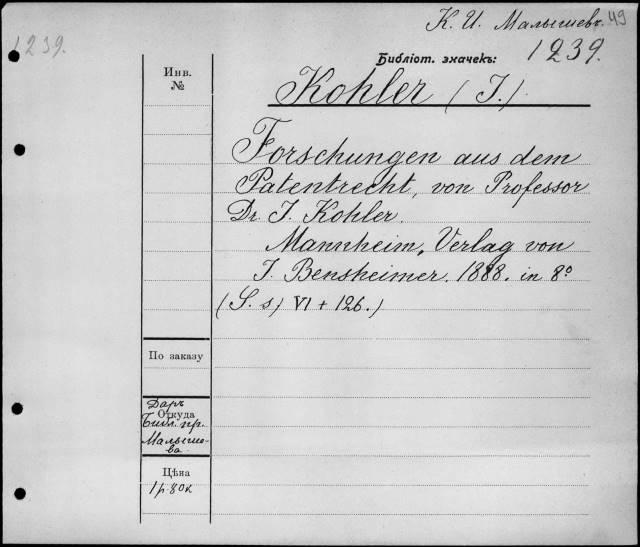 К. И. Малышевъ. 49
1239.
Библіот. значекъ: 1239.
Инв.
№
Kohler (J.)
Forschungen aus dem
Patentrecht, von Professor
Dr. J. Kohler.
Mannheim, Verlag von
J. Bensheimer. 1888. in 8º
(S. s) VI + 126.)
По заказу
Даръ
Откуда
Библ. пр.
Малыше-
ва
Цѣна
1 р. 80 к